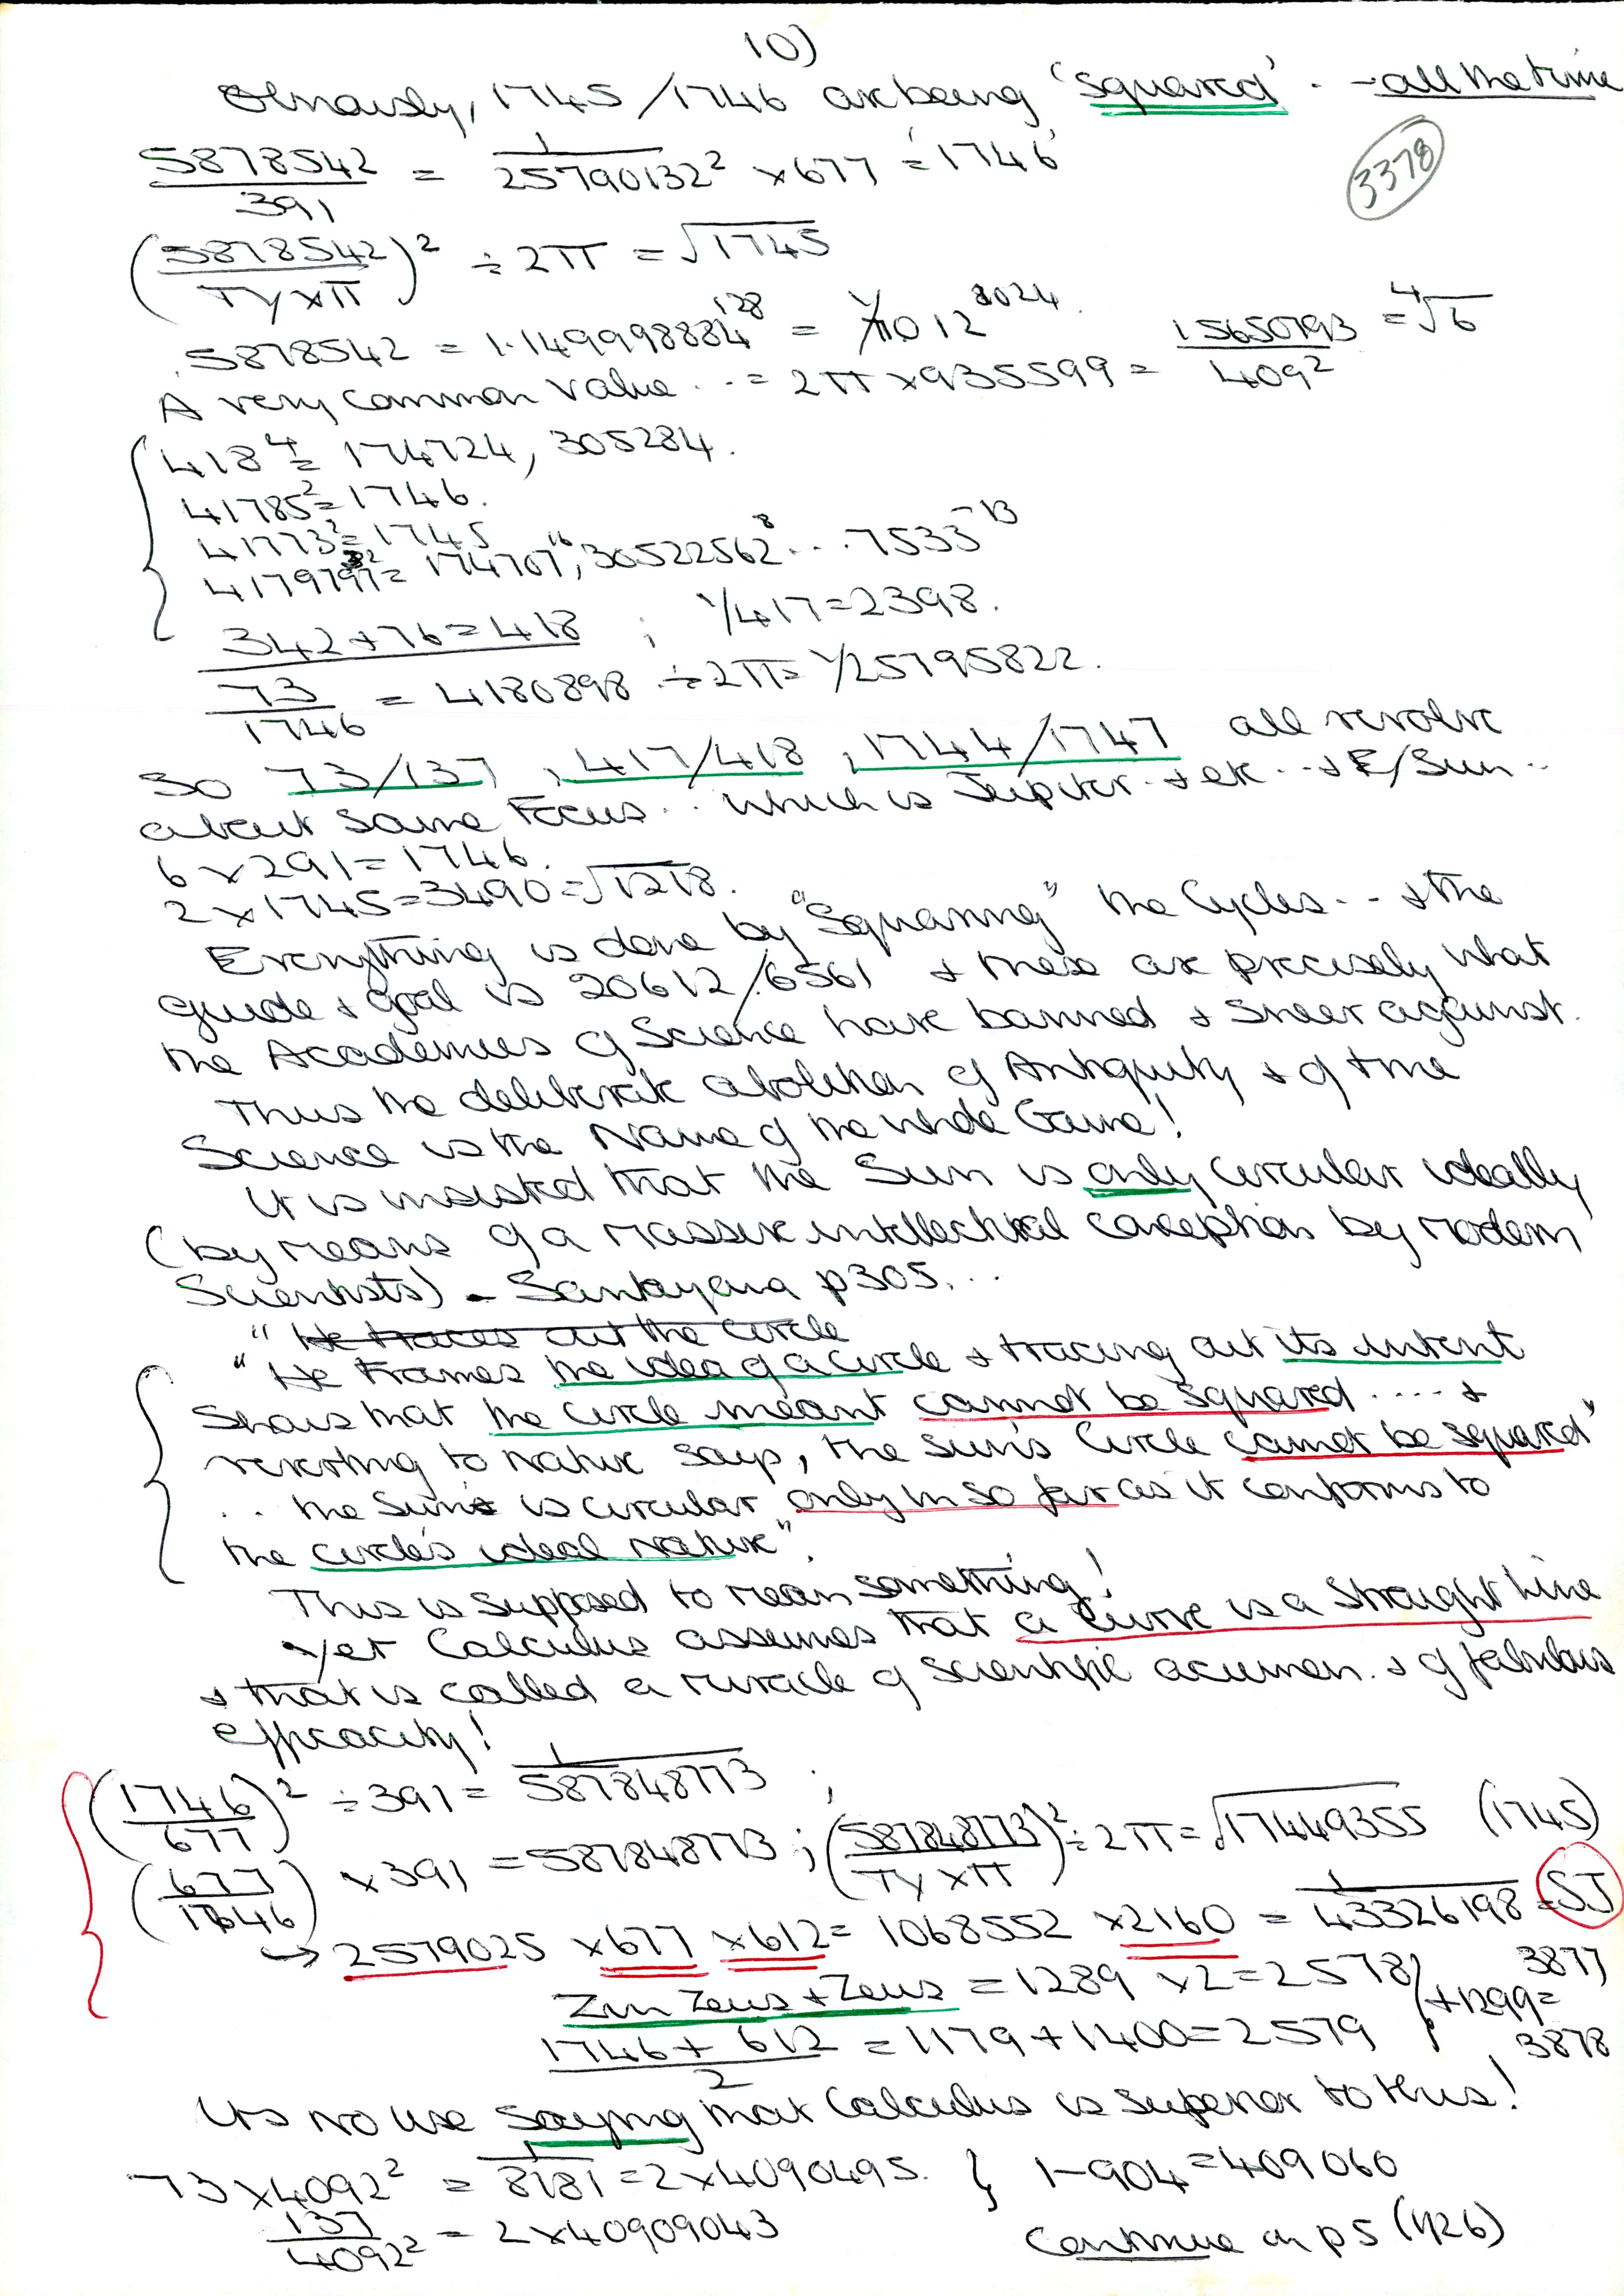 10)
Obviously, 1745/1746 are being 'squared' - - all the time
3378
5878542/391 = 1/25790132² × 677 = '1746'
(5878542/TY×π)² ÷ 2π = √1745
5878542 = 1.149998884¹²⁸ = 1/1012¹⁰²⁴
A very common value .. = 2π × 935599 = 15650793/409² = ⁴√6
418⁴ = 174724, 305284.
41785² = 1746.
41773² = 1745
4179797³² = 174707¹⁶, 30522562⁸ ... 7533⁻¹³
342+76=418 ; 1/417=2398.
73/1746 = 4180898 ÷ 2π = 1/25795822.
So 73/137, 417/418, 1744/1747 all revolve
about same Focus .. which is Jupiter. + etc .. + E/Sun ..
6 × 291 = 1746.
2 × 1745 = 3490 = √1218.
Everything is done by "Squaring" the Cycles .. + the
guide + goal is 20612/6561 + these are precisely what
the Academies of Science have banned + sneer against.
Thus the deliberate abolition of Antiquity + of true
Science is the Name of the whole Game!
It is insisted that the Sun is only circular ideally
(by means of a massive intellectual conception by modern
Scientists) - Santayana p305...
" He traces out the circle
"He Frames the idea of a circle + tracing out its intent
Shows that the circle meant cannot be squared .... +
reverting to Nature says, the sun's Circle cannot be squared"
.. the Sun is circular only in so far as it conforms to
the circle's ideal nature".
This is supposed to mean something!
Yet Calculus assumes that a curve is a straight line
+ that is called a miracle of scientific acumen. + of fabulous
efficacity!
(1746/677)² ÷ 391 = 1/587848773 ;
(677/1746) × 391 = 587848773 ; (587848773/TY×π)² ÷ 2π = √17449355 (1745)
→ 2579025 × 677 × 612 = 1068552 × 2160 = 1/43326198 = SJ
Zun Zeus + Zeus = 1289 × 2 = 2578 / + 1299 = 3877
1746 + 612/2 = 1179 + 1400 = 2579 / 3878
Its no use saying that Calculus is superior to this!
73 × 4092² = 1/8181 = 2 × 4090495. } 1-904 = 409060
137/4092² = 2 × 40909043
Continue on p5 (1/26)